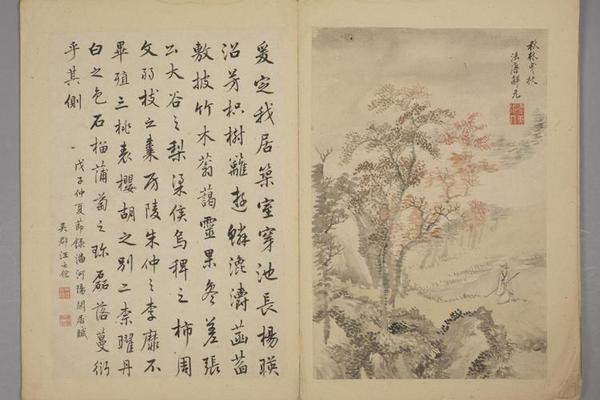 爰定我居築室穿池長楊暎
沼芳枳樹籬遊鱗瀺灂菡萏
敷披竹木蓊藹靈果參差張
公大谷之梨梁侯烏椑之柿周
文弱枝之棗房陵朱仲之李靡不
畢殖三桃表櫻胡之別二柰曜丹
白之色石榴蒲萄之珎磊落蔓衍
乎其側
戊子仲夏節錄潘河陽閒居賦
吳郡汪士
秋林曳杖
法唐解元